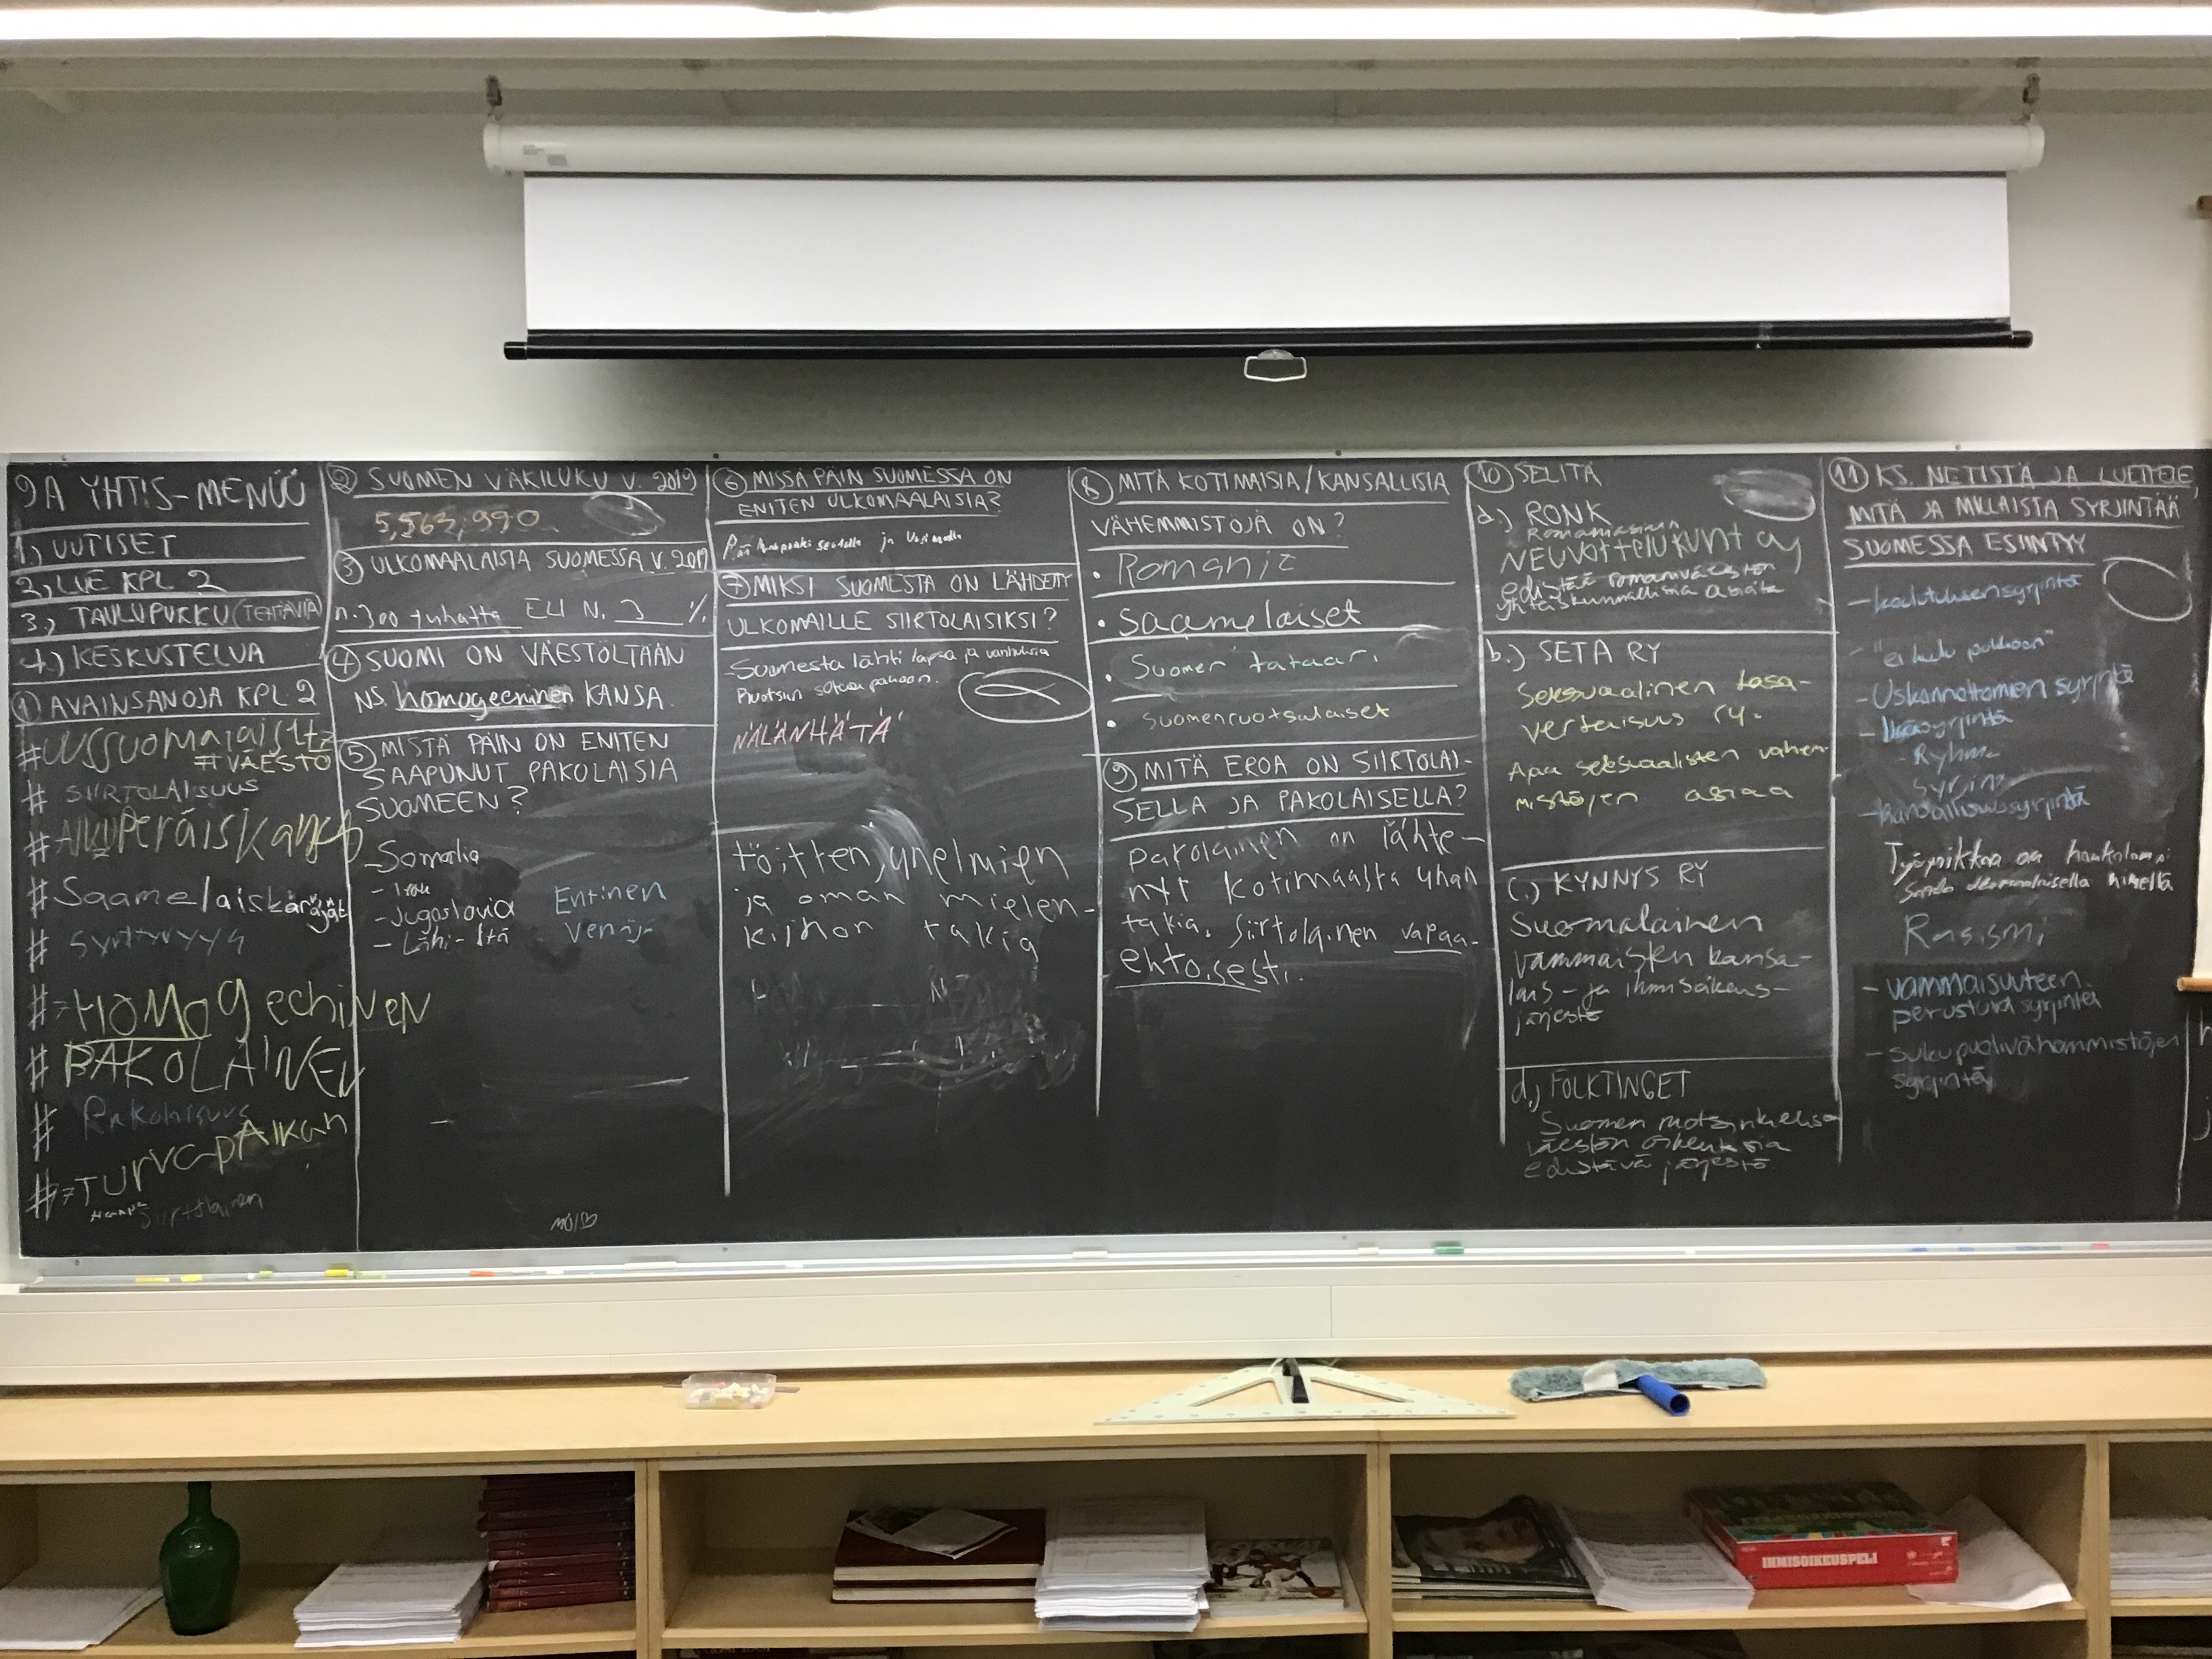 9A YHTIS-MENÜÜ
1.) UUTISET
2.) LUE KPL 2
3.) TAULUPUKKU (TEHTÄVIÄ)
4.) KESKUSTELUA
① AVAINSANOJA KPL 2
#VÄESTÖ
# SIIRTOLAISUUS
# AlkuPeräiskansa
# Saamelaiskäräjät
# HOMOgeeninen
# PAKOLAINEN
# Pakolaisuus
# TURVAPAIKAN
Siirtolainen
② SUOMEN VÄKILUKU V. 2019
5,563,990
③ ULKOMAALAISIA SUOMESSA V. 2019
n. 300 tuhatta ELI N. 3 %
④ SUOMI ON VÄESTÖLTÄÄN
NS. homogeeninen KANSA.
⑤ MISTÄ PÄIN ON ENITEN
SAAPUNUT PAKOLAISIA
SUOMEEN?
- Somalia
- Jugoslavia
- Lähi-Itä
Entinen
Venäjä
MOI♡
⑥ MISSÄ PÄIN SUOMESSA ON
ENITEN ULKOMAALAISIA?
Pääkaupunki seudulla ja Uusimaalla
⑦ MIKSI SUOMESTA ON LÄHDETTY
ULKOMAILLE SIIRTOLAISIKSI?
- Suomesta lähti lapsia ja vanhuksia
Ruotsiin sotaa pakoon.
NÄLÄNHÄTÄ
töitten, unelmien
ja oman mielen-
kiihon takia
⑧ MITÄ KOTIMAISIA/KANSALLISIA
VÄHEMMISTÖJÄ ON?
• Romanit
• Saamelaiset
• Suomen tataari
• suomenruotsalaiset
⑨ MITÄ EROA ON SIIRTOLAI-
SELLA JA PAKOLAISELLA?
pakolainen on lähte-
nyt kotimaasta uhan
takia. Siirtolainen vapaa-
ehtoisesti.
⑩ SELITÄ
a.) RONK
Romaniasiain
NEUVOTTELUKUNTA
edistää romaniväestön
yhteiskunnallisia asioita
b.) SETA RY
Seksuaalinen tasa-
vertaisuus ry.
Ajaa seksuaalisten vähem-
mistöjen asiaa
c.) KYNNYS RY
Suomalainen
vammaisten kansa-
lais- ja ihmisoikeus-
järjestö
d.) FOLKTINGET
Suomen ruotsinkielisen
väestön oikeuksia
edistävä järjestö.
⑪ KS. NETISTÄ JA LUETTELE,
MITÄ JA MILLAISTA SYRJINTÄÄ
SUOMESSA ESIINTYY
- koulutuksen syrjintä
- "ei kuulu pukkoon"
- Uskonnottomien syrjintä
- Ikäsyrjintä
- Ryhmä
syrjintä
- kansallisuussyrjintä
Työpaikkaa on
saada ulkomaalaisella nimellä
Rasismi
- vammaisuuteen
perustuva syrjintä
- sukupuolivähemmistöjen
syrjintä
IHMISOIKEUSPELI